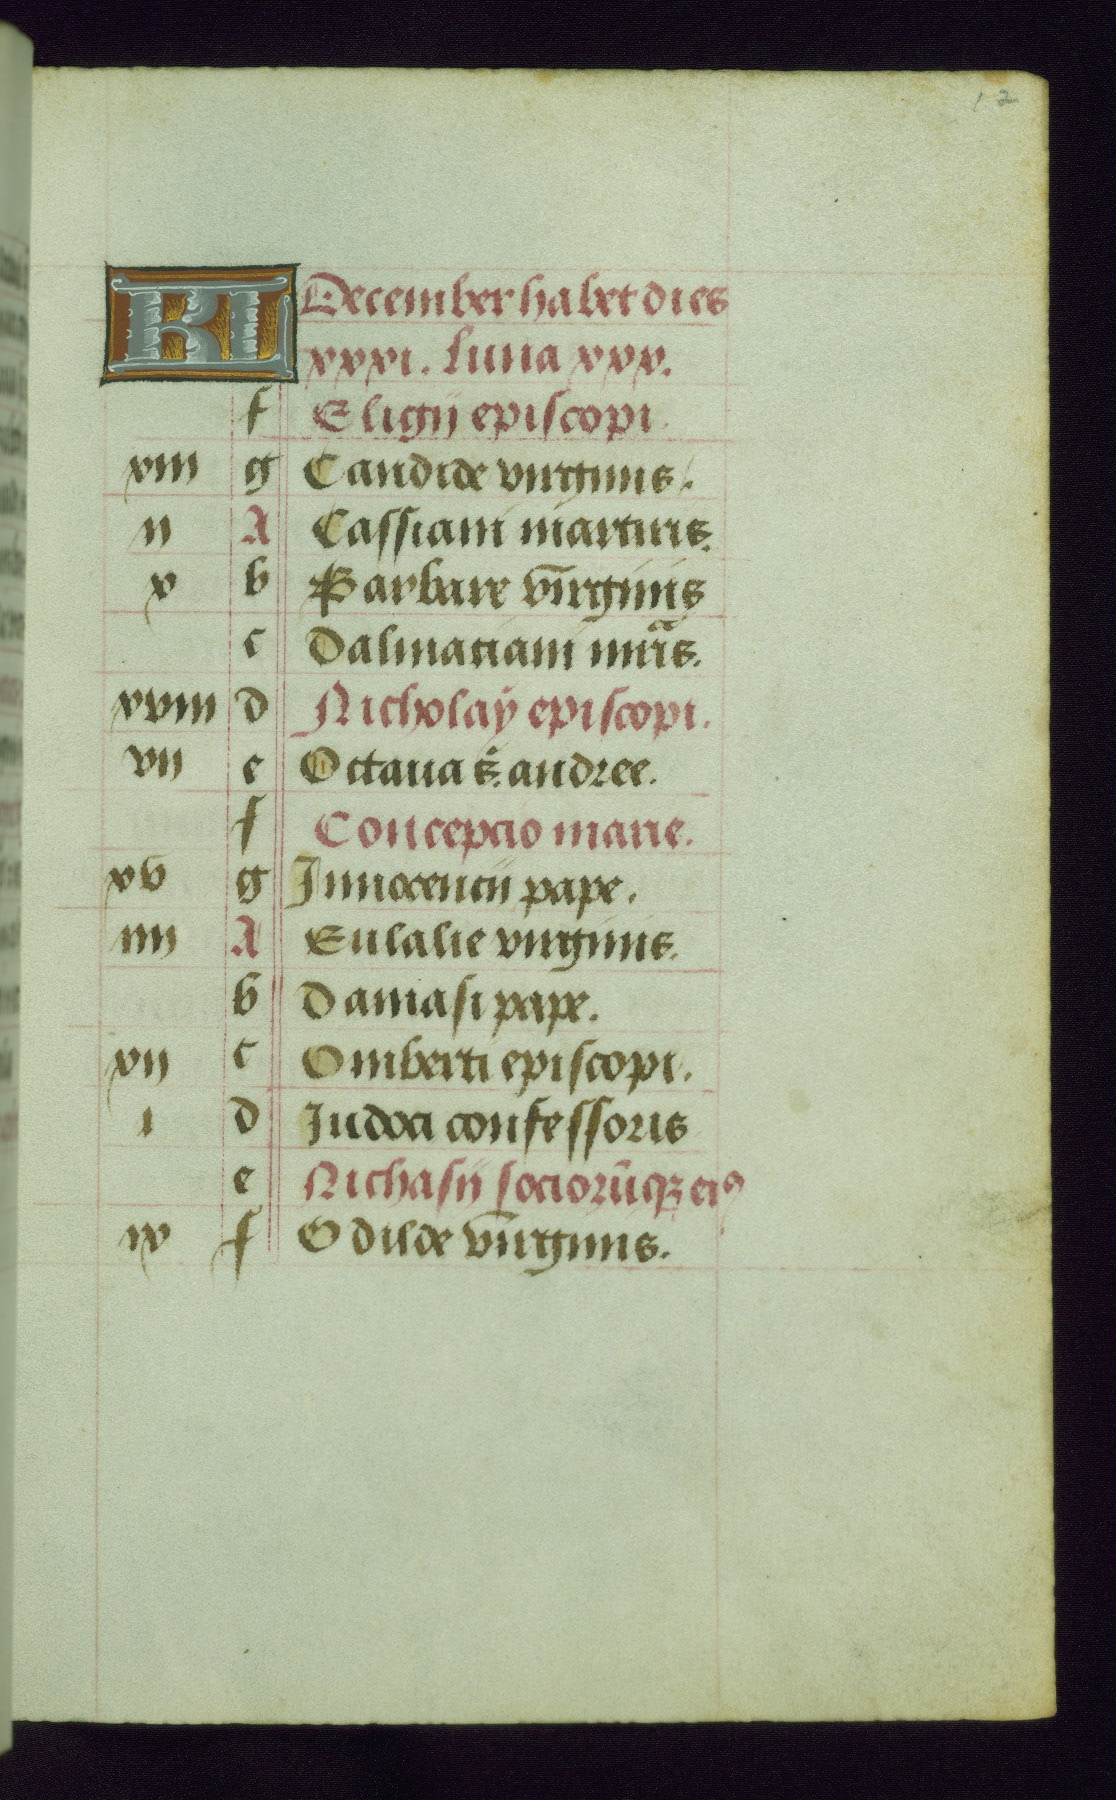 12
KL December habet dies
xxxi. luna xxx.
f Eligij episcopi.
xiii g Candide virginis.
ii A Cassiani martiris.
x b Barbare virginis
c Dalmaciani mris.
xviii d Nicholaÿ episcopi.
vii e Octaua s. andree.
f Concepcio marie.
xv g Innocencij pape.
iiii A Eulalie virginis.
b Damasi pape.
xii c Omberti episcopi.
i d Judoci confessoris
e Nichasij sociorūqz eiꝰ
ix f Odilde virginis.